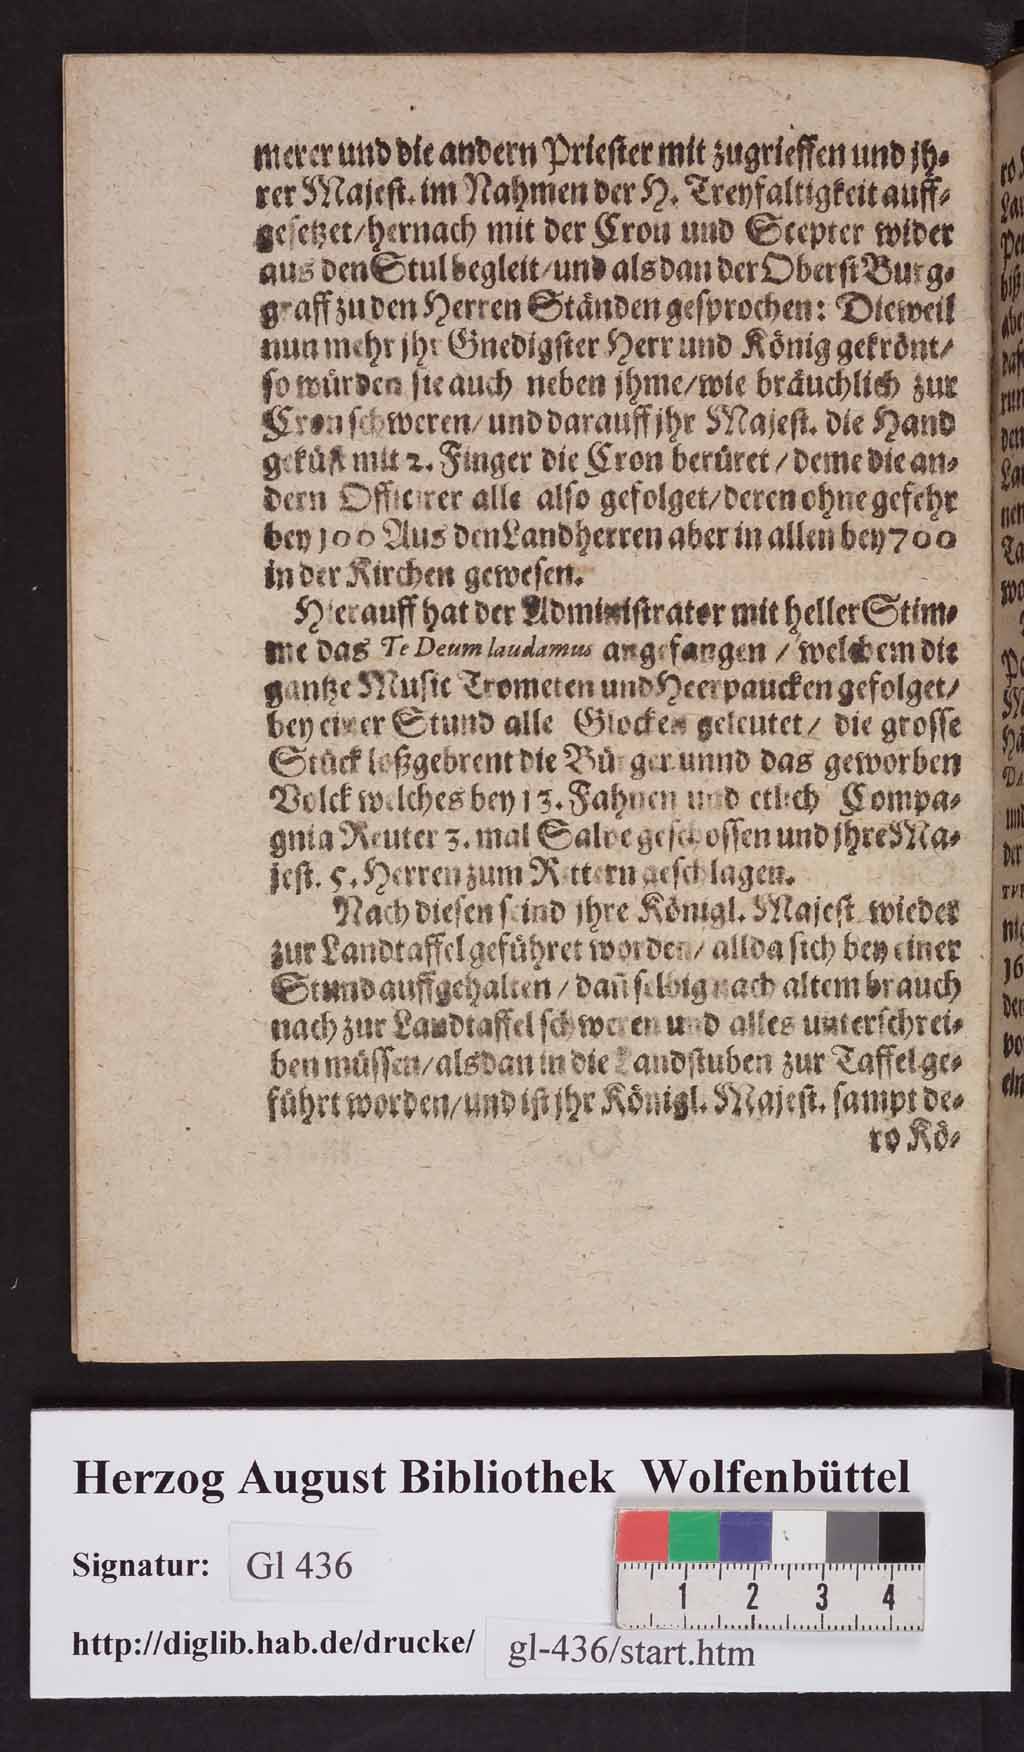 merer und die andern Priester mit zugrieffen und jh-
rer Majest. im Nahmen der H. Treyfaltigkeit auff-
gesetzet/hernach mit der Cron und Scepter wider
aus den Stul begleit/und als dan der Oberst Burg-
graff zu den Herren Ständen gesprochen: Dieweil
nun mehr jhr Gnedigster Herr und König gekrönt/
so würden sie auch neben jhme/wie bräuchlich zur
Cron schweren/und darauff jhr Majest. die Hand
geküst mit 2. Finger die Cron berüret/deme die an-
dern Officirer alle also gefolget/deren ohne gefehr
bey 100 Aus den Landherren aber in allen bey 700
in der Kirchen gewesen.
Hierauff hat der Administrator mit heller Stim-
me das Te Deum laudamus angefangen/welchem die
gantze Music Trometen und Heerpaucken gefolget/
bey einer Stund alle Glocken geleutet/ die grosse
Stück loßgebrent die Bürger unnd das geworben
Volck welches bey 13. Fahnen und etlich Compa-
gnia Reuter 3. mal Salve geschossen und jhre Ma-
jest. 5. Herren zum Rittern geschlagen.
Nach diesen seind jhre Königl. Majest. wieder
zur Landtaffel geführet worden/allda sich bey einer
Stund auffgehalten/dañ selbig nach altem brauch
nach zur Landtaffel schweren und alles unterschrei-
ben müssen/alsdan in die Landstuben zur Taffel ge-
führt worden/und ist jhr Königl. Majest. sampt de-
ro Kö-
Herzog August Bibliothek Wolfenbüttel
Signatur: Gl 436
1 2 3 4
http://diglib.hab.de/drucke/ gl-436/start.htm